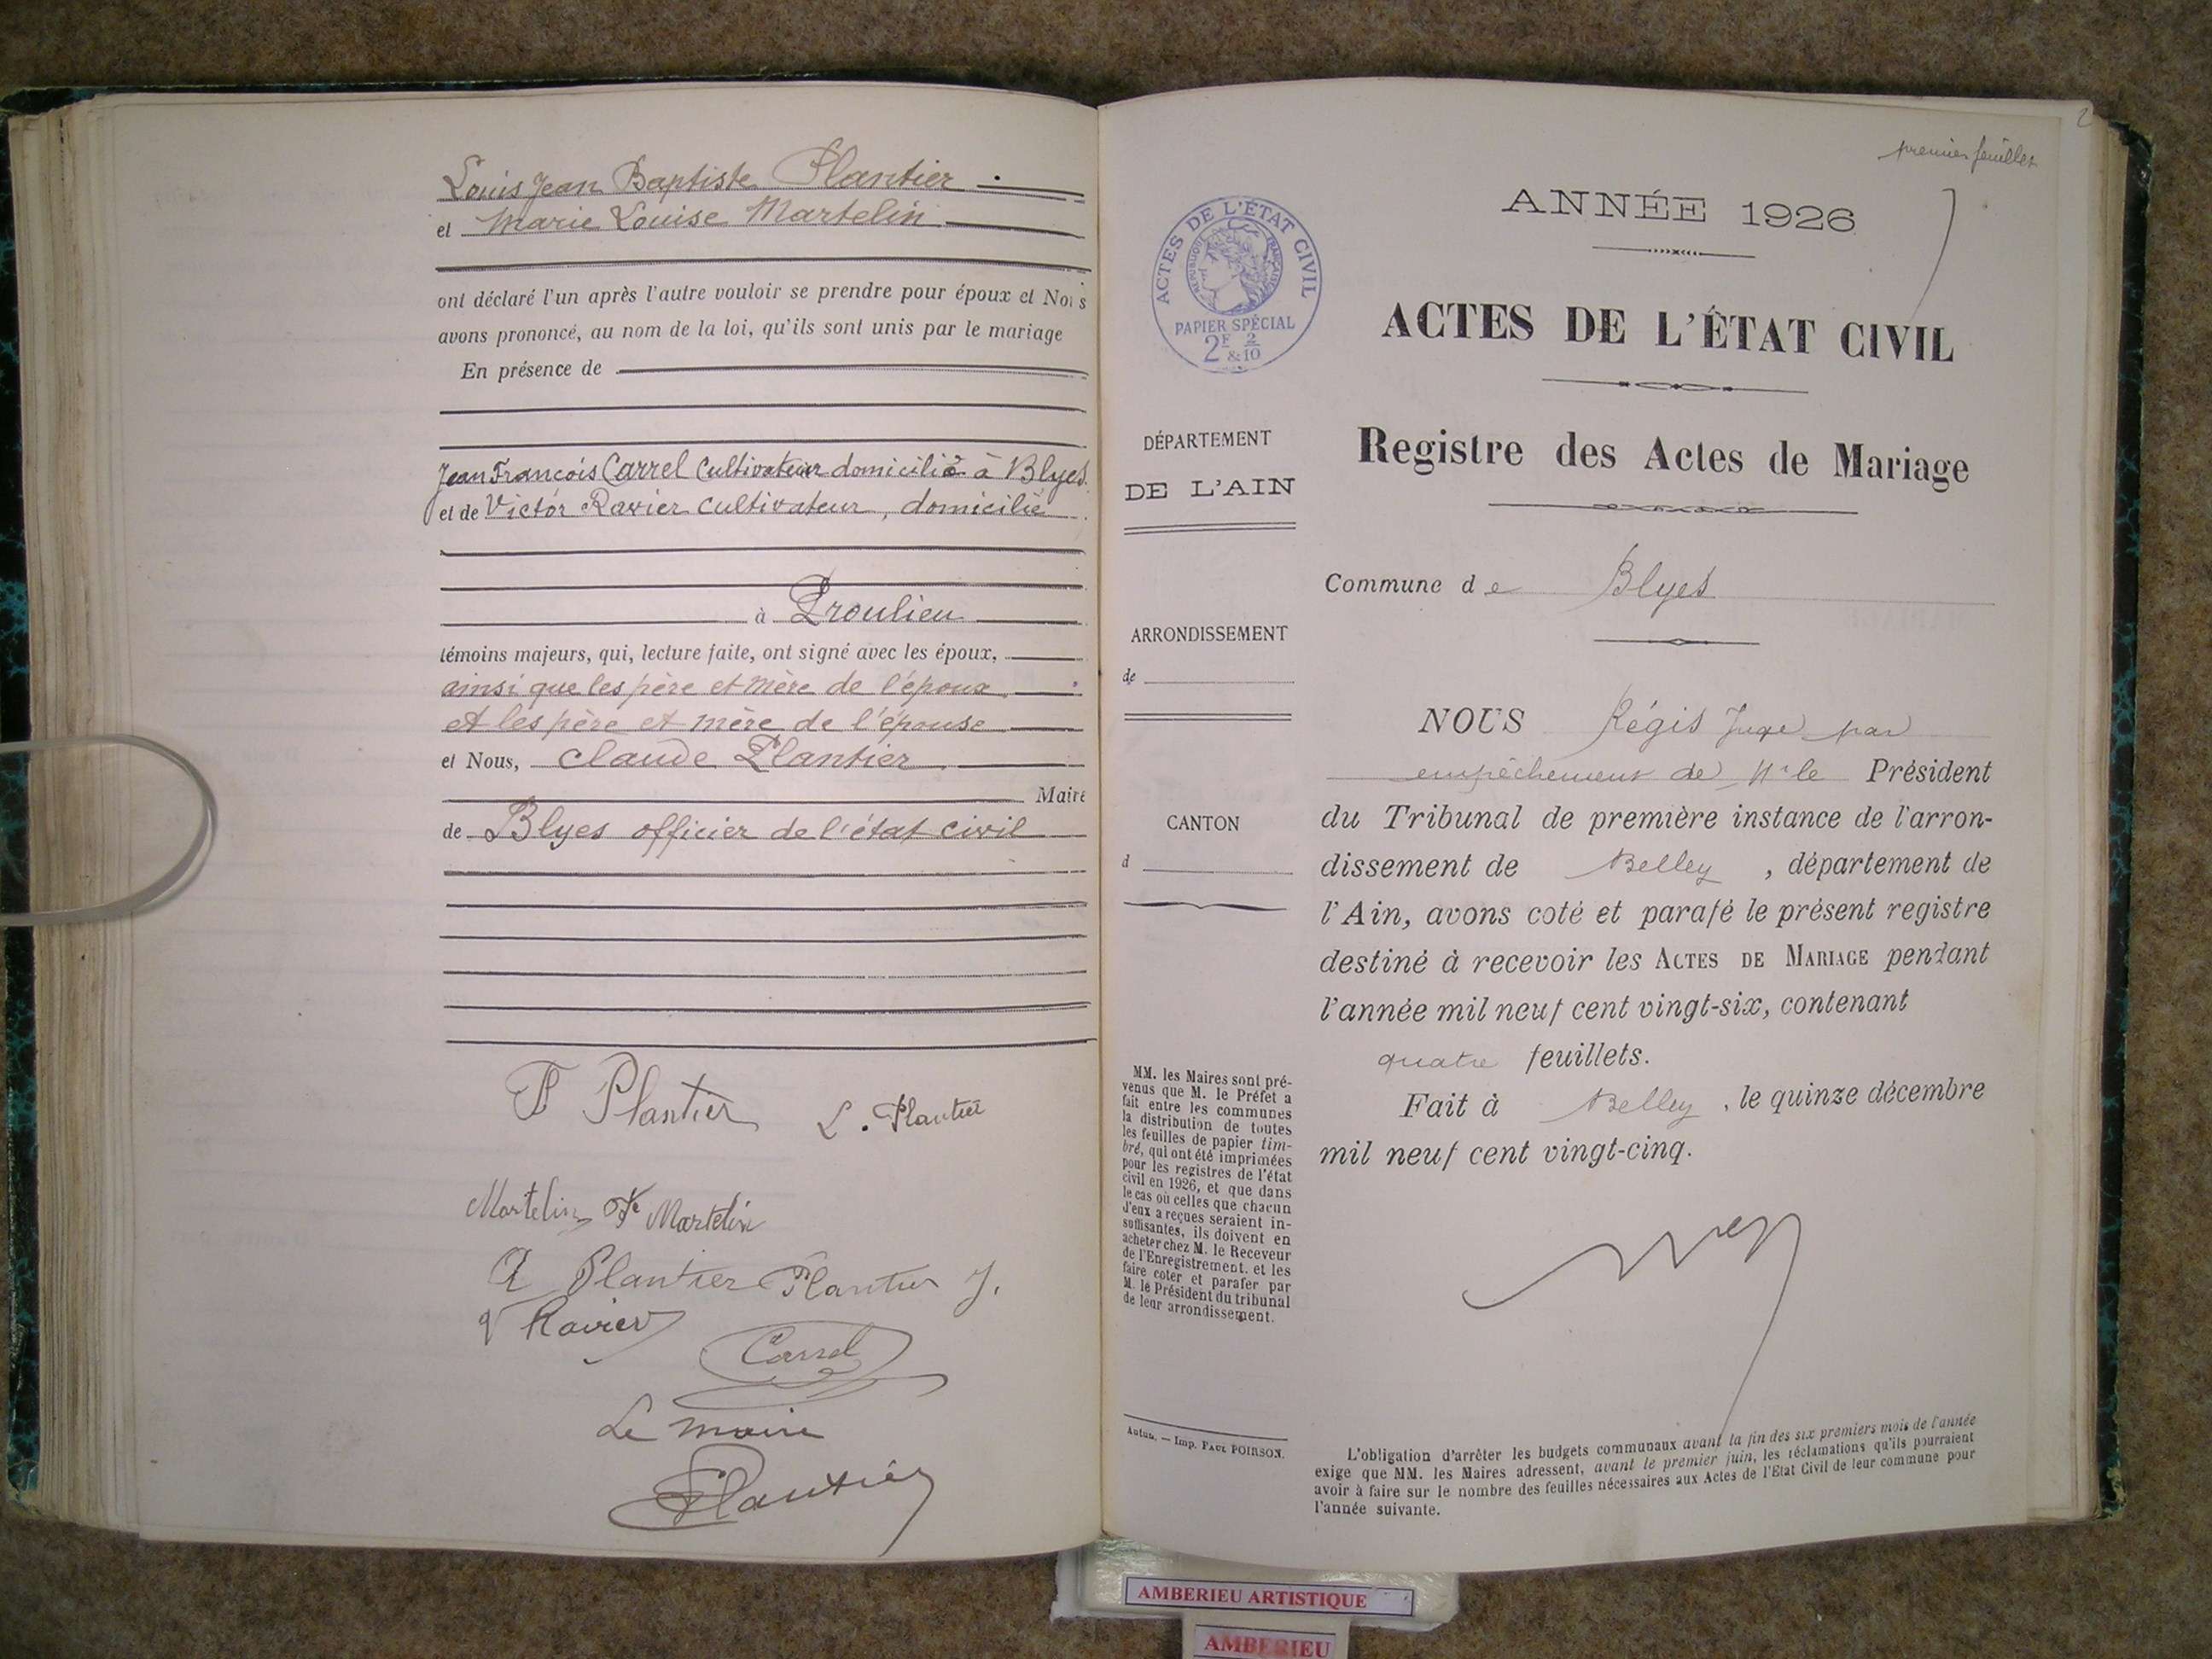 Louis Jean Baptiste Plantier
et Marie Louise Martelin
ont déclaré l'un après l'autre vouloir se prendre pour époux et Nous
avons prononcé, au nom de la loi, qu'ils sont unis par le mariage
En présence de
Jean François Carrel Cultivateur domicilié à Blyes
et de Victor Ravier Cultivateur, domicilié
à Proulieu
témoins majeurs, qui, lecture faite, ont signé avec les époux,
ainsi que les père et mère de l'époux
et les père et mère de l'épouse
et Nous, Claude Plantier
Maire
de Blyes officier de l'état civil
F Plantier
L. Plantier
Martelin Martelin
A Plantier Plantier J.
V Ravier
Carrel
Le maire
Plantier
2
premier feuillet
ANNÉE 1926
ACTES DE L'ÉTAT CIVIL
RÉPUBLIQUE FRANÇAISE
PAPIER SPÉCIAL
2F & 2/10
ACTES DE L'ÉTAT CIVIL
Registre des Actes de Mariage
DÉPARTEMENT
DE L'AIN
Commune de Blyes
ARRONDISSEMENT
de
CANTON
d
NOUS Régis Juge par
empêchement de Mr le Président
du Tribunal de première instance de l'arron-
dissement de Belley, département de
l'Ain, avons coté et parafé le présent registre
destiné à recevoir les ACTES DE MARIAGE pendant
l'année mil neuf cent vingt-six, contenant
quatre feuillets.
Fait à Belley, le quinze décembre
mil neuf cent vingt-cinq.
MM. les Maires sont pré-
venus que M. le Préfet a
fait entre les communes
la distribution de toutes
les feuilles de papier tim-
bré, qui ont été imprimées
pour les registres de l'état
civil en 1926, et que dans
le cas où celles que chacun
d'eux a reçues seraient in-
suffisantes, ils doivent en
acheter chez M. le Receveur
de l'Enregistrement. et les
faire coter et parafer par
M. le Président du tribunal
de leur arrondissement.
Autun. — Imp. PAUL POIRSON.
L'obligation d'arrêter les budgets communaux avant la fin des six premiers mois de l'année
exige que MM. les Maires adressent, avant le premier juin, les réclamations qu'ils pourraient
avoir à faire sur le nombre des feuilles nécessaires aux Actes de l'Etat Civil de leur commune pour
l'année suivante.
AMBERIEU ARTISTIQUE
AMBERIEU